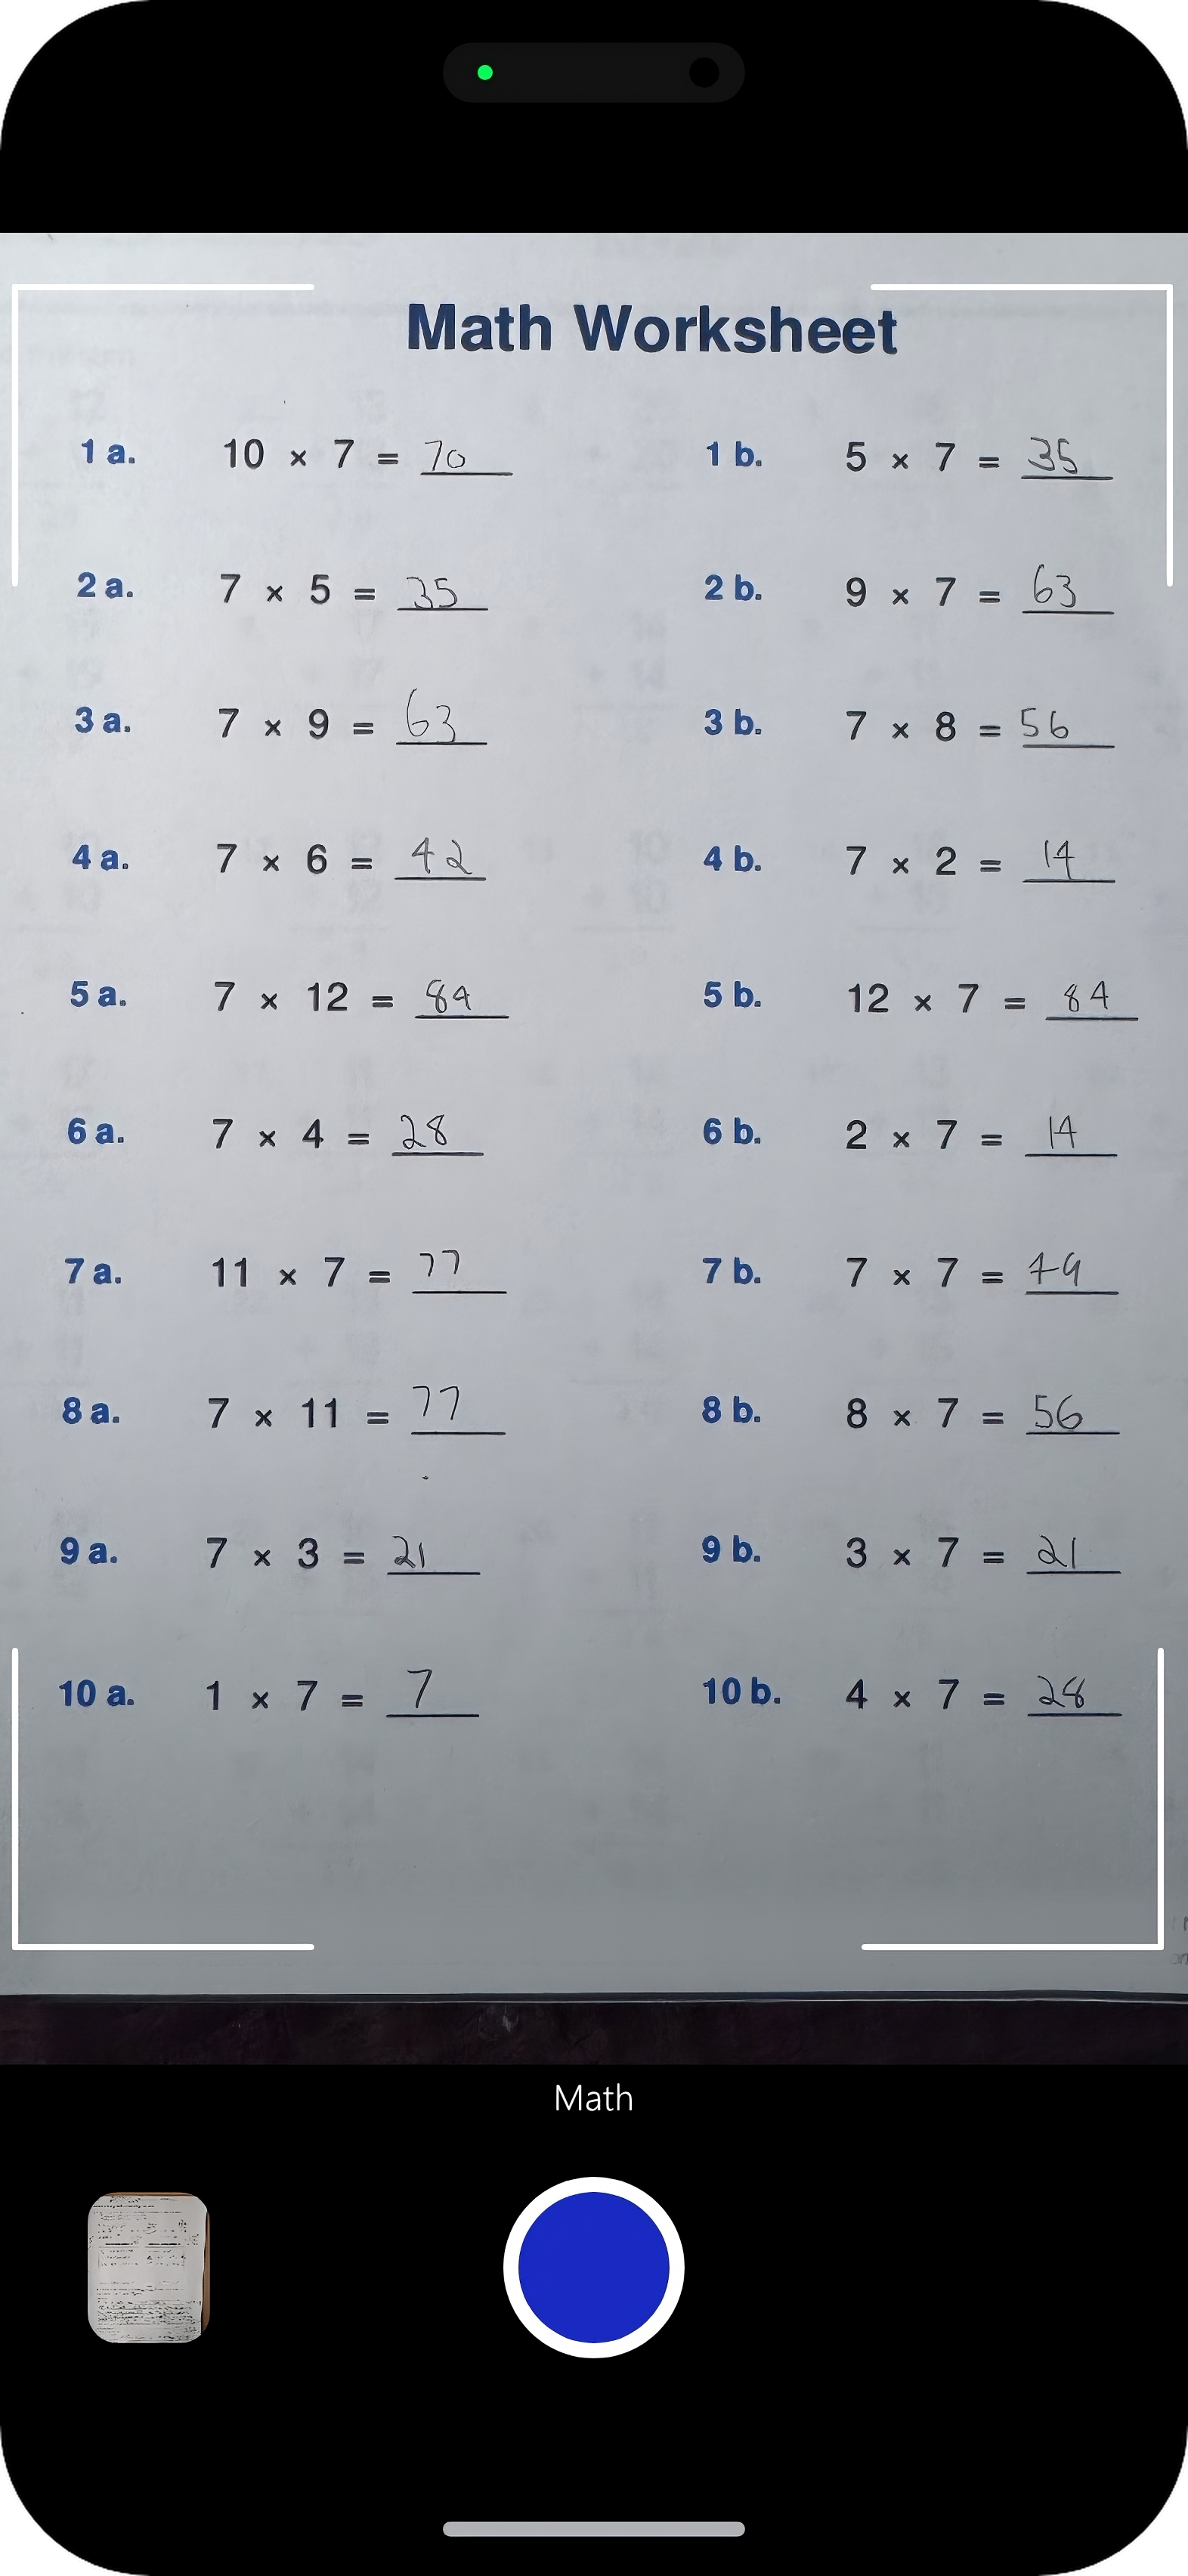 Math Worksheet
1 a. 10 × 7 = 70 1 b. 5 × 7 = 35
2 a. 7 × 5 = 35 2 b. 9 × 7 = 63
3 a. 7 × 9 = 63 3 b. 7 × 8 = 56
4 a. 7 × 6 = 42 4 b. 7 × 2 = 14
5 a. 7 × 12 = 84 5 b. 12 × 7 = 84
6 a. 7 × 4 = 28 6 b. 2 × 7 = 14
7 a. 11 × 7 = 77 7 b. 7 × 7 = 49
8 a. 7 × 11 = 77 8 b. 8 × 7 = 56
9 a. 7 × 3 = 21 9 b. 3 × 7 = 21
10 a. 1 × 7 = 7 10 b. 4 × 7 = 28
Math